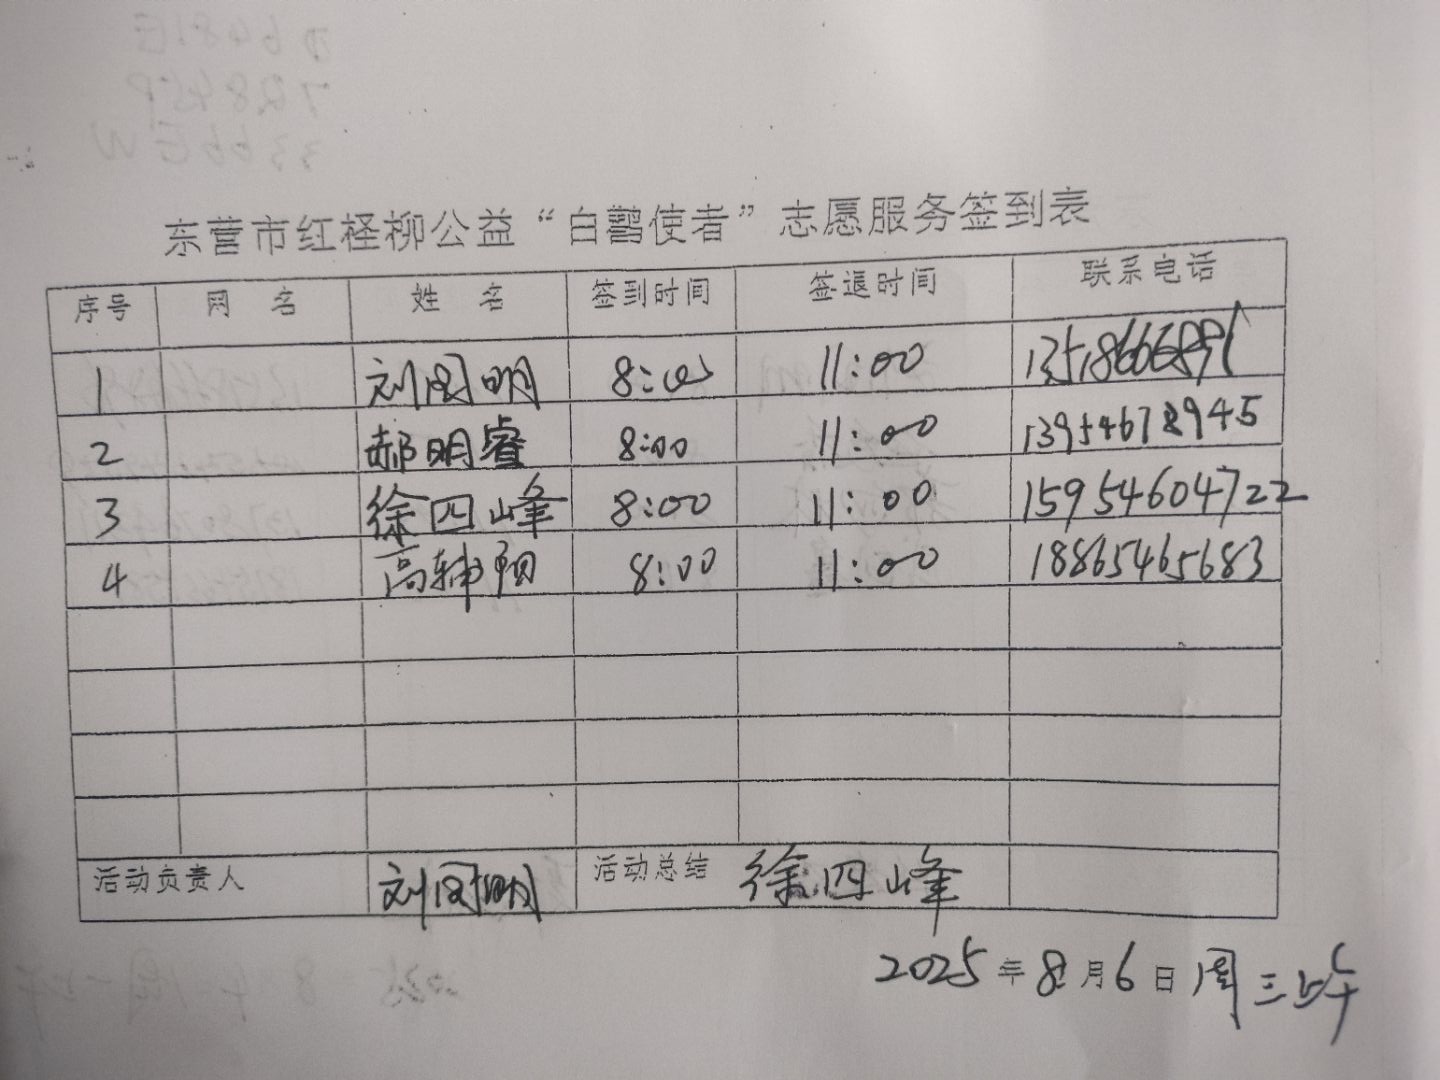 东营市红柽柳公益“白鹳使者”志愿服务签到表
序号 网 名 姓 名 签到时间 签退时间 联系电话
1 刘国明 8:00 11:00
2 郝明睿 8:00 11:00 13954678945
3 徐四峰 8:00 11:00 15954604722
4 高 8:00 11:00 18865465683
活动负责人 刘国明 活动总结 徐四峰
2025年8月6日 周三上午